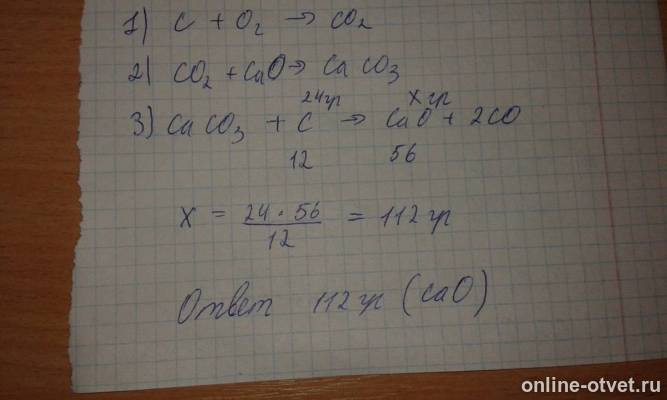 1) C + O₂ → CO₂
2) CO₂ + CaO → CaCO₃
24гр хгр
3) CaCO₃ + C → CaO + 2CO
12 56
X = 24 · 56 / 12 = 112 гр
Ответ 112 гр (CaO)
online-otvet.ru